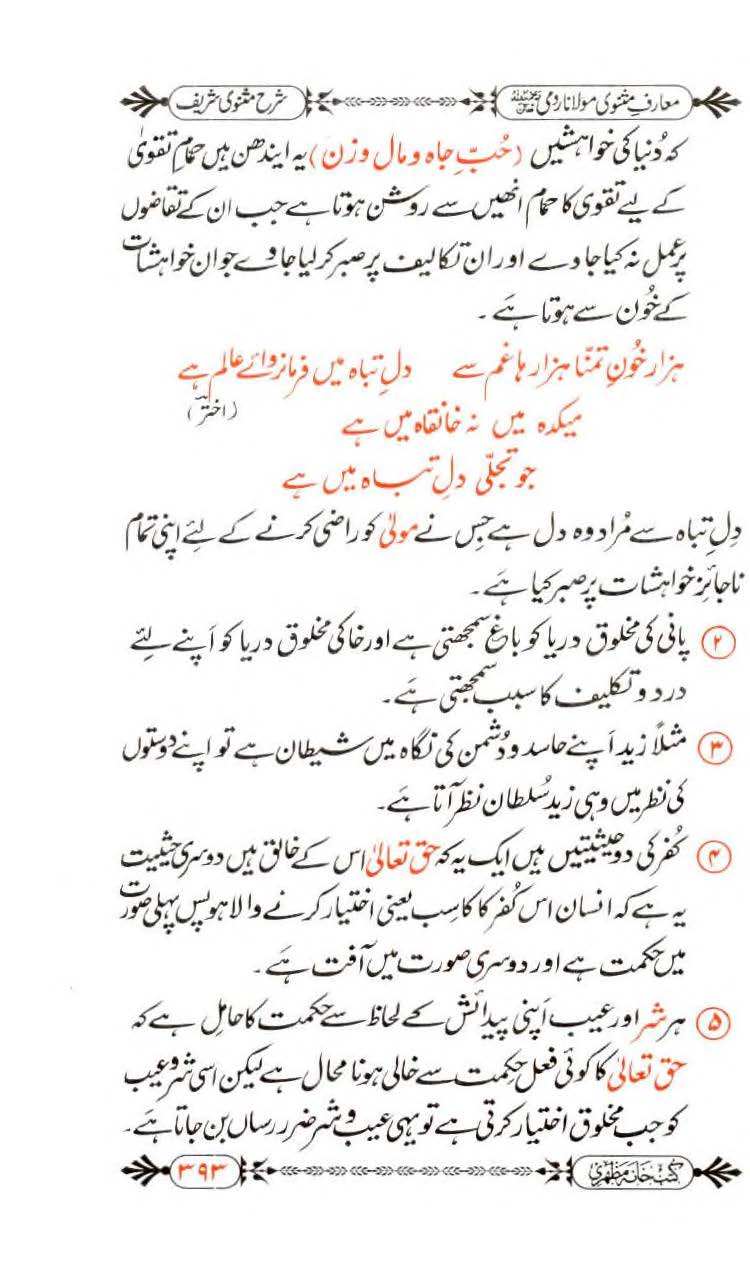 معارفِ مثنوی مولانا رومی رحمۃ اللہ علیہ
شرح مثنوی شریف
کہ دُنیا کی خواہشیں (حُبِّ جاہ و مال و زن) یہ ایندھن ہیں حمامِ تقویٰ
کے لیے تقوی کا حمام انھیں سے روشن ہوتا ہے جب ان کے تقاضوں
پر عمل نہ کیا جاوے اور ان تکالیف پر صبر کرلیا جاوے جو ان خواہشات
کے خُون سے ہوتا ہَے ۔
ہزار خُونِ تمنّا ہزارہا غم سے دلِ تباہ میں فرمانروائے عالم ہے
(اخترؔ)
میکدہ میں نہ خانقاہ میں ہے
جو تجلّی دلِ تباہ میں ہے
دِلِ تباہ سے مُراد وہ دل ہے جِس نے مولیٰ کو راضی کرنے کے لِئے اپنی تمام
ناجائز خواہشات پر صبر کیا ہَے ۔
۲ پانی کی مخلوق دریا کو باغ سمجھتی ہے اور خاکی مخلوق دریا کو اَپنے لئے
درد و تکلیف کا سبب سمجھتی ہَے ۔
۳ مثلاً زید اَپنے حاسد و دُشمن کی نگاہ میں شیطان ہے تو اپنے دوستوں
کی نظر میں وہی زید سُلطان نظر آتا ہَے ۔
۴ کُفر کی دو حیثیتیں ہیں ایک یہ کہ حق تعالیٰ اس کے خالق ہیں دوسری حیثیت
یہ ہے کہ انسان اس کُفر کا کاسِب یعنی اختیار کرنے والا ہو پس پہلی صورت
میں حکمت ہے اور دوسری صورت میں آفت ہَے ۔
۵ ہر شر اور عیب اَپنی پیدائش کے لحاظ سے حکمت کا حامِل ہے کہ
حق تعالیٰ کا کوئی فعل حِکمت سے خالی ہونا محال ہے لیکن اسی شر و عیب
کو جب مخلوق اختیار کرتی ہے تو یہی عیب و شر ضرر رساں بن جاتا ہَے ۔
کُتب خانہ مظہری
۳۹۳